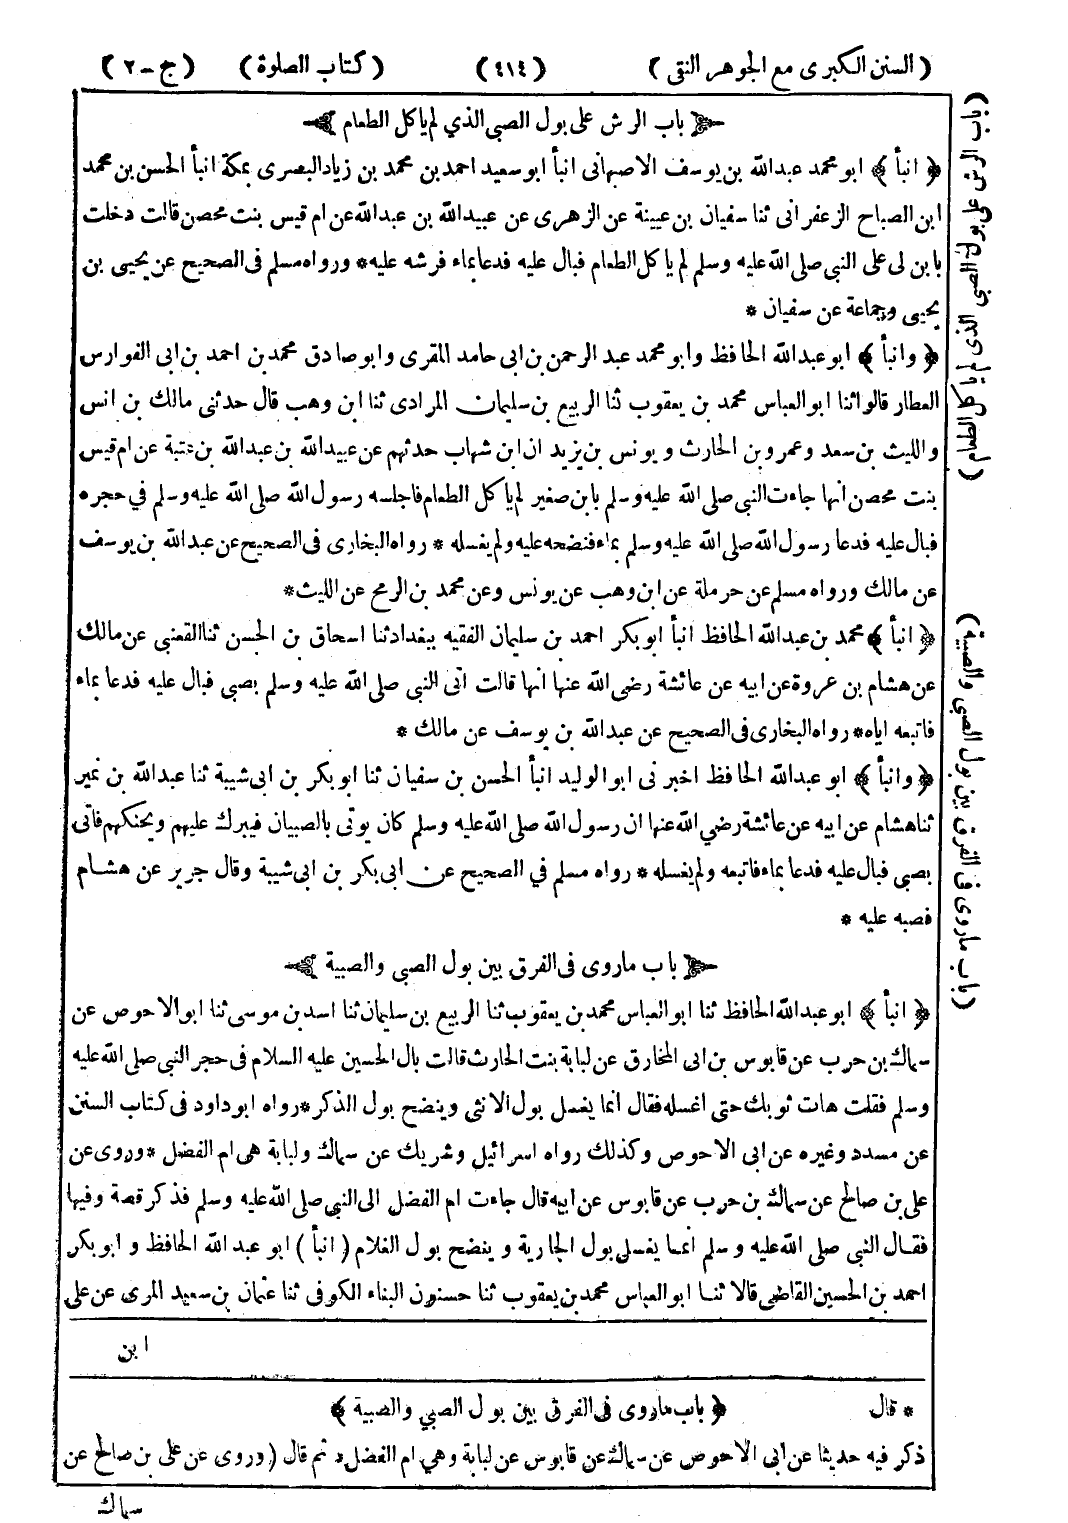 ( السنن الكبرى مع الجوهر النقى ) (٤١٤) ( كتاب الصلوة ) ( ج - ٢ )
باب الرش على بول الصبى الذي لم ياكل الطعام
﴿ انبأ ﴾ ابو محمد عبدالله بن يوسف الاصبهانى انبأ ابو سعيد احمد بن محمد بن زياد البصرى بمكة انبأ الحسن بن محمد
ابن الصباح الزعفرانى ثنا سفيان بن عيينة عن الزهرى عن عبيدالله بن عبدالله عن ام قيس بنت محصن قالت دخلت
بابن لى على النبى صلى الله عليه وسلم لم ياكل الطعام فبال عليه فدعا بماء فرشه عليه * ورواه مسلم فى الصحيح عن يحيى بن
يحيى وجماعة عن سفيان *
﴿ وانبأ ﴾ ابو عبدالله الحافظ وابو محمد عبد الرحمن بن ابى حامد المقرى وابو صادق محمد بن احمد بن ابى الفوارس
العطار قالوا ثنا ابو العباس محمد بن يعقوب ثنا الربيع بن سليمان المرادى ثنا ابن وهب قال حدثنى مالك بن انس
والليث بن سعد وعمرو بن الحارث و يونس بن يزيد ان ابن شهاب حدثهم عن عبيدالله بن عبدالله بن عتبة عن ام قيس
بنت محصن انها جاءت النبى صلى الله عليه وسلم بابن صغير لم ياكل الطعام فاجلسه رسول الله صلى الله عليه وسلم في حجره
فبال عليه فدعا رسول الله صلى الله عليه وسلم بماء فنضحه عليه ولم يغسله * رواه البخارى فى الصحيح عن عبدالله بن يوسف
عن مالك ورواه مسلم عن حرملة عن ابن وهب عن يونس وعن محمد بن الرمح عن الليث *
﴿ انبأ ﴾ محمد بن عبدالله الحافظ انبأ ابو بكر احمد بن سليمان الفقيه ببغداد ثنا اسحاق بن الحسن ثنا القعنبى عن مالك
عن هشام بن عروة عن ابيه عن عائشة رضى الله عنها انها قالت اتى النبى صلى الله عليه وسلم بصبى فبال عليه فدعا بماء
فاتبعه اياه * رواه البخارى فى الصحيح عن عبدالله بن يوسف عن مالك *
﴿ وانبأ ﴾ ابو عبدالله الحافظ اخبرنى ابو الوليد انبأ الحسن بن سفيان ثنا ابو بكر بن ابى شيبة ثنا عبدالله بن نمير
ثنا هشام عن ابيه عن عائشة رضي الله عنها ان رسول الله صلى الله عليه وسلم كان يوتى بالصبيان فيبرك عليهم ويحنكهم فاتى
بصبى فبال عليه فدعا بماء فاتبعه ولم يغسله * رواه مسلم في الصحيح عن ابى بكر بن ابى شيبة وقال جرير عن هشام
فصبه عليه *
باب ماروى فى الفرق بين بول الصبى والصبية
﴿ انبأ ﴾ ابو عبدالله الحافظ ثنا ابو العباس محمد بن يعقوب ثنا الربيع بن سليمان ثنا اسد بن موسى ثنا ابو الاحوص عن
سماك بن حرب عن قابوس بن ابى المخارق عن لبابة بنت الحارث قالت بال الحسين عليه السلام فى حجر النبى صلى الله عليه
وسلم فقلت هات ثوبك حتى اغسله فقال انما يغسل بول الانثى وينضح بول الذكر * رواه ابو داود فى كتاب السنن
عن مسدد وغيره عن ابى الاحوص وكذلك رواه اسرائيل وشريك عن سماك ولبابة هى ام الفضل * وروى عن
على بن صالح عن سماك بن حرب عن قابوس عن ابيه قال جاءت ام الفضل الى النبى صلى الله عليه وسلم فذكر قصة وفيها
فقال النبى صلى الله عليه وسلم انما يغسل بول الجارية و ينضح بول الغلام ( انبأ ) ابو عبد الله الحافظ و ابو بكر
احمد بن الحسين القاضى قالا ثنا ابو العباس محمد بن يعقوب ثنا حسنون البناء الكوفى ثنا عثمان بن سعيد المرى عن على
ابن
* قال ﴿ باب ماروى فى الفرق بين بول الصبي والصبية ﴾
ذكر فيه حديثا عن ابى الاحوص عن سماك عن قابوس عن لبابة وهي ام الفضل ثم قال ( وروى عن على بن صالح عن
سماك
( باب الرش على بول الصبى الذى لم ياكل الطعام )
( باب ماروى فى الفرق بين بول الصبى والصبية )